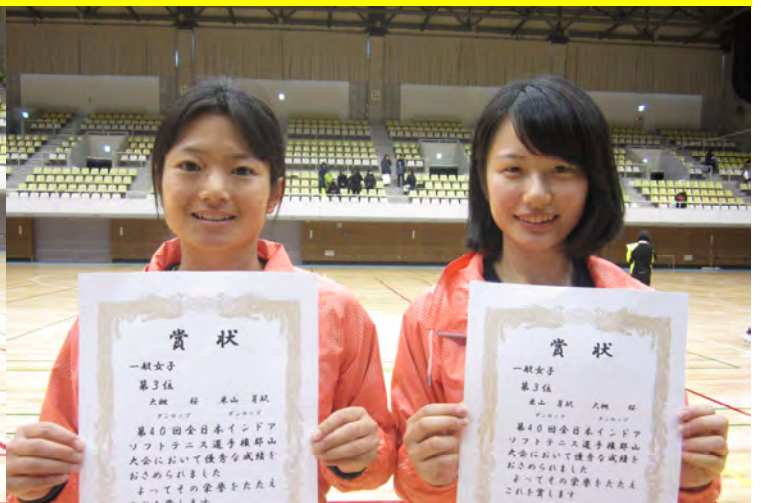 賞状
一般女子
第3位
大槻 桜 東山
ダンロップ ダンロップ
第40回全日本インドア
ソフトテニス選手権郡山
大会において優秀な成績を
おさめられました
よってその栄誉をたたえ
これを賞します
賞状
一般女子
第3位
東山 大槻 桜
ダンロップ ダンロップ
第40回全日本インドア
ソフトテニス選手権郡山
大会において優秀な成績を
おさめられました
よってその栄誉をたたえ
これを賞します